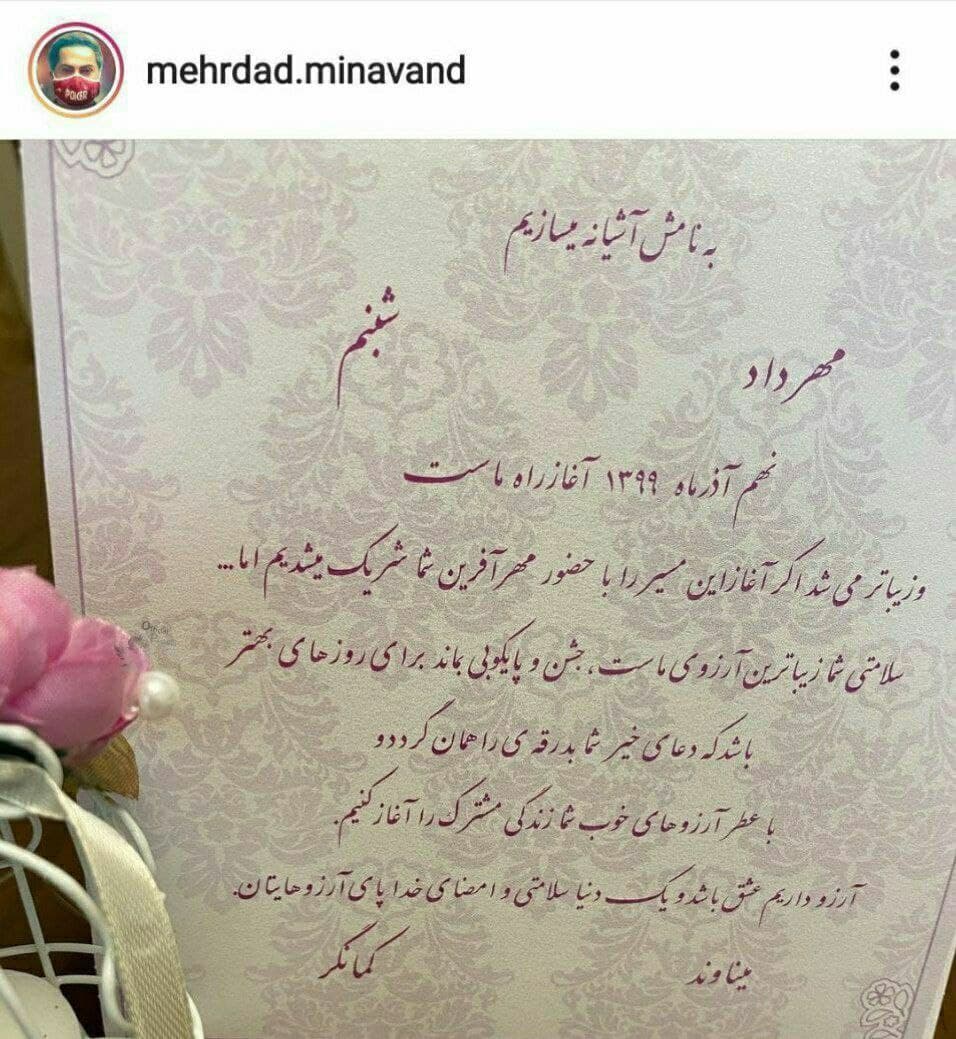 mehrdad.minavand
POKER
به نامش آشیانه میسازیم
شبنم
مهرداد
نهم آذرماه ۱۳۹۹ آغاز راه ماست
وزیباتر می شد اگر آغاز این مسیر را با حضور مهرآفرین شما شریک میشدیم اما...
سلامتی شما زیباترین آرزوی ماست، جشن و پایکوبی بماند برای روزهای بهتر
باشد که دعای خیر شما بدرقه ی راهمان گردد و
با عطر آرزوهای خوب شما زندگی مشترک را آغاز کنیم.
آرزو داریم عشق باشد و یک دنیا سلامتی و امضای خدا پای آرزوهایتان.
میناوند
کمانگر
Official